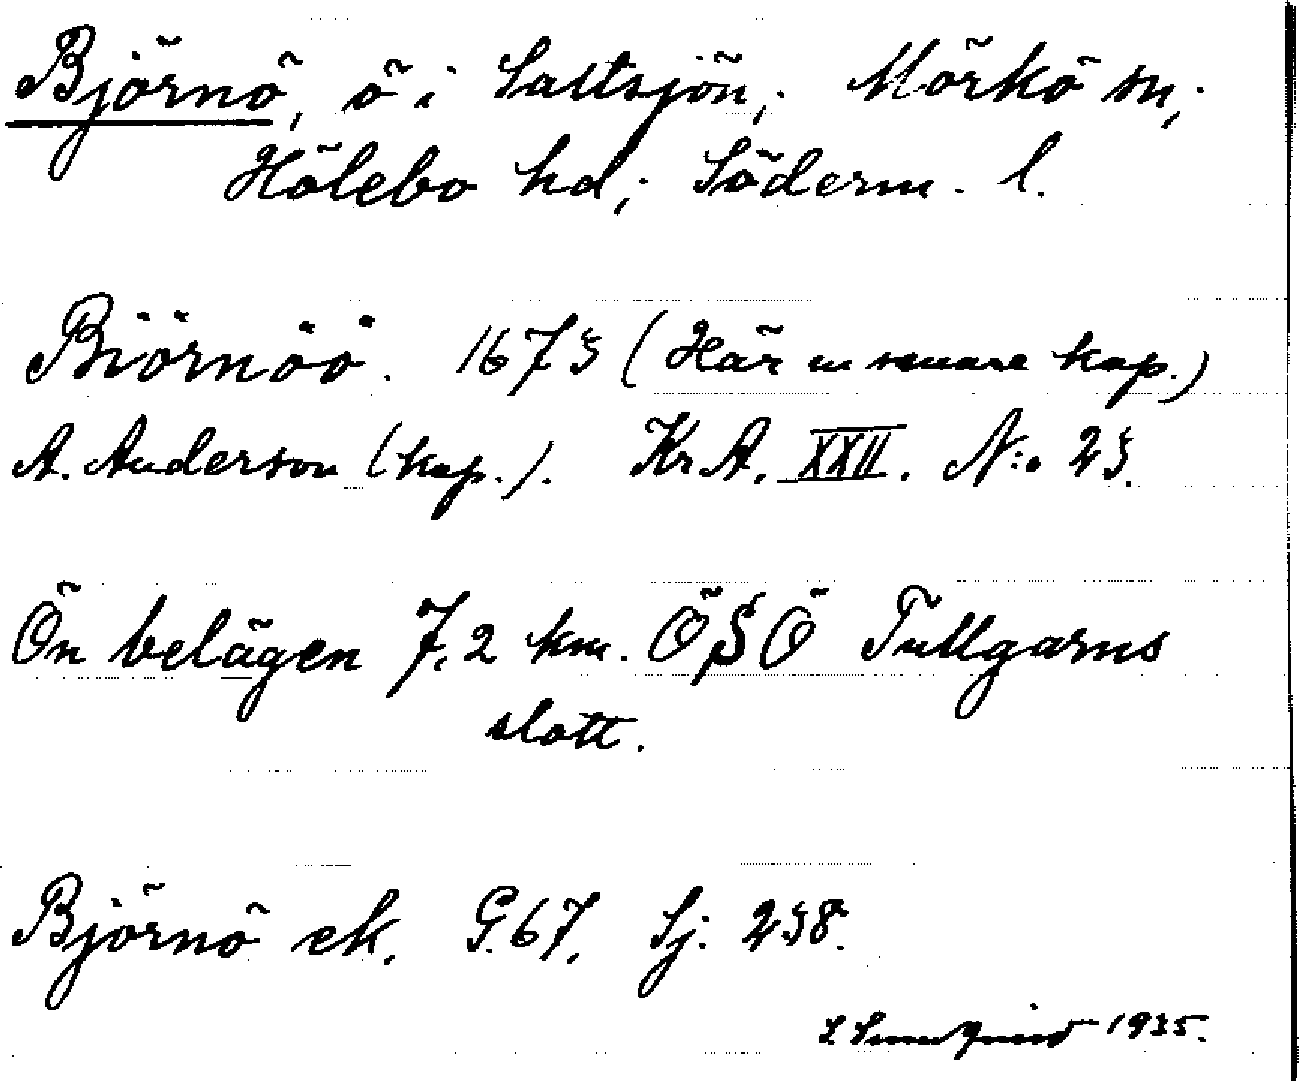 Björnö, ö i Saltsjön; Mörkö sn;
Hölebo hd; Söderm. l.
Biörnöö. 1675 (Här en senare kop.)
A. Anderson (kop.). Kr A. XXII. N:o 25.
Ön belägen 7,2 km. ÖSÖ Tullgarns
slott.
Björnö ek. G. 67. Sj. 258.
1935.